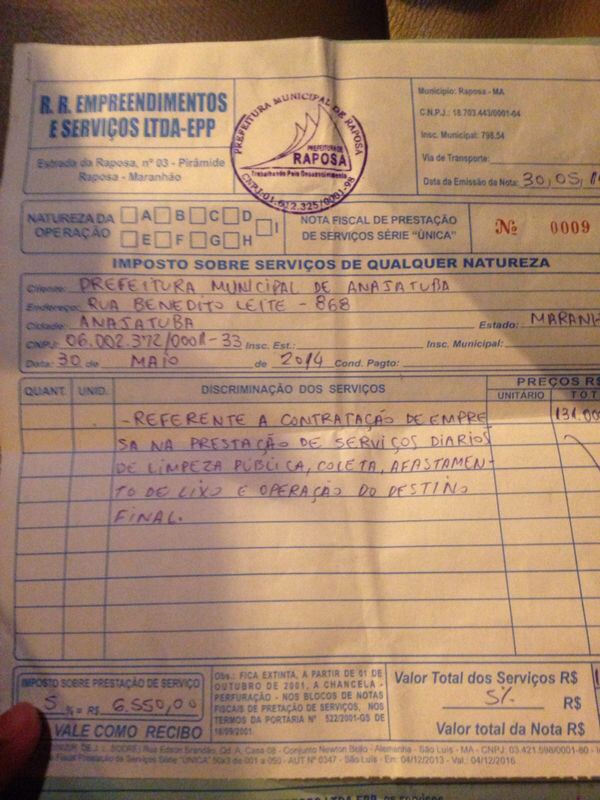 R. R. EMPREENDIMENTOS
E SERVIÇOS LTDA-EPP
Estrada da Raposa, nº 03 - Pirâmide
Raposa - Maranhão
PREFEITURA MUNICIPAL DE RAPOSA
PREFEITURA DE
RAPOSA
Trabalhando Pelo Desenvolvimento
CNPJ-01.612.325/0001-98
Município: Raposa - MA
C.N.P.J.: 18.703.443/0001-04
Insc. Municipal: 798.54
Via de Transporte:
Data da Emissão da Nota: 30,05,
NATUREZA DA
OPERAÇÃO
A B C D
E F G H
I
NOTA FISCAL DE PRESTAÇÃO
DE SERVIÇOS SÉRIE "ÚNICA"
Nº 0009
IMPOSTO SOBRE SERVIÇOS DE QUALQUER NATUREZA
Cliente: PREFEITURA MUNICIPAL DE ANAJATUBA
Endereço: RUA BENEDITO LEITE - 868
Cidade: ANAJATUBA Estado: MARANH
CNPJ: 06.002.372/0001-33 Insc. Est.: Insc. Municipal:
Data: 30 de MAIO de 2014 Cond. Pagto:
QUANT. UNID. DISCRIMINAÇÃO DOS SERVIÇOS PREÇOS R$
UNITÁRIO TOT
- REFERENTE A CONTRATAÇÃO DE EMPRE 131.000
SA NA PRESTAÇÃO DE SERVIÇOS DIARIOS
DE LIMPEZA PÚBLICA, COLETA, AFASTAMEN-
TO DE LIXO E OPERAÇÃO DO DESTINO
FINAL.
IMPOSTO SOBRE PRESTAÇÃO DE SERVIÇO
5 % = R$ 6.550,00
VALE COMO RECIBO
Obs.: FICA EXTINTA, A PARTIR DE 01 DE
OUTUBRO DE 2001, A CHANCELA -
PERFURAÇÃO - NOS BLOCOS DE NOTAS
FISCAIS DE PRETAÇÃO DE SERVIÇOS, NOS
TERMOS DA PORTARIA Nº 522/2001-GS DE
18/09/2001.
Valor Total dos Serviços R$
5% R$
Valor total da Nota R$
Rua Edson Brandão, Qd. A, Casa 08 - Conjunto Newton Bello - Alemanha - São Luís - MA - CNPJ: 03.421.598/0001-60
Fiscal Prestação de Serviços Série "ÚNICA" 50x3 de 001 a 050 - AUT Nº 0347 - São Luís - Em: 04/12/2013 - Val.: 04/12/2016